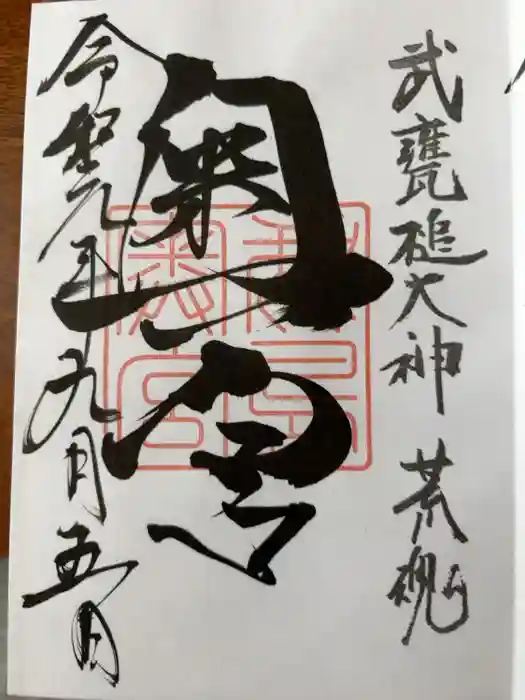 武甕槌大神 荒魂
奥宮
令和元年九月五日